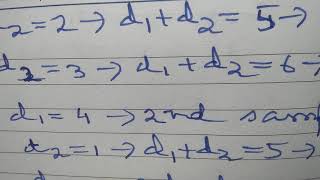 2 = 2 → d₁ + d₂ = 5 →
d₂ = 3 → d₁ + d₂ = 6 →
d₁ = 4 → 2nd
d₂ = 1 → d₁ + d₂ = 5 →